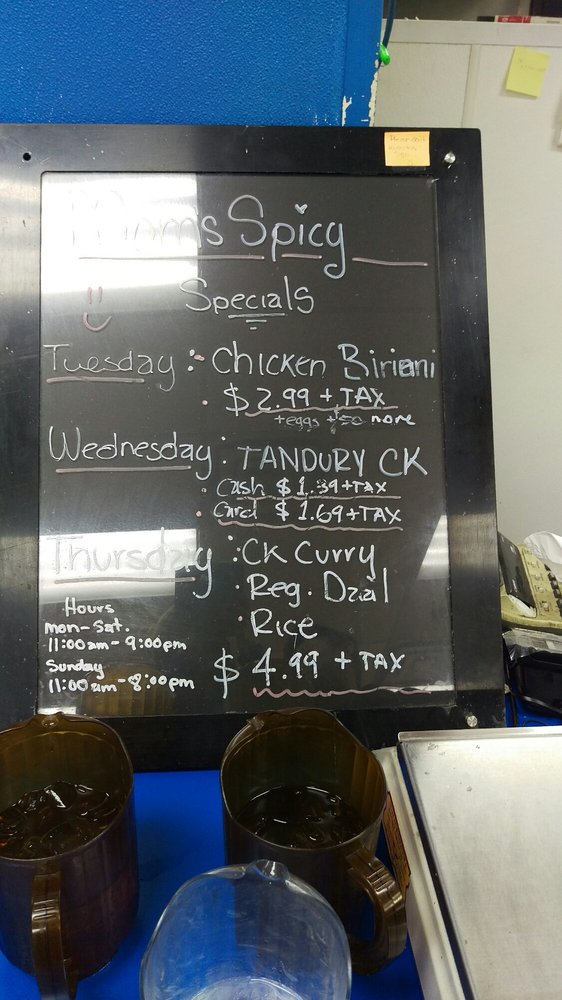 Mom's Spicy
Specials
Tuesday : Chicken Biriani
$ 2.99 + TAX
+eggs + 50 more
Wednesday : TANDURY CK
Cash $ 1.39 + TAX
Card $ 1.69 + TAX
Thursday : CK Curry
Reg. Daal
Rice
$ 4.99 + TAX
Hours
mon-Sat.
11:00am - 9:00pm
Sunday
11:00am - 8:00pm